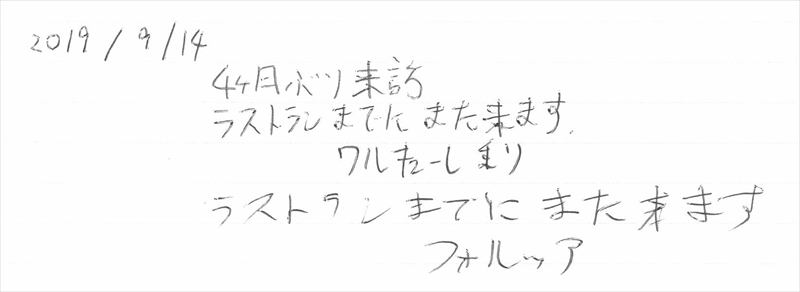 2019/9/14
4ヶ月ぶり来訪
ラストランまでにまた来ます.
ワルキューレまり
ラストランまでにまた来ます
フォルッア